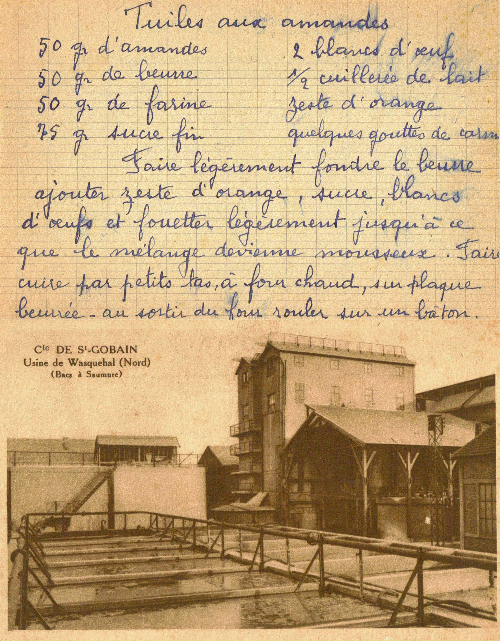 Tuiles aux amandes
50 gr d'amandes
50 gr de beurre
50 gr de farine
75 gr sucre fin
2 blancs d'œuf
1/2 cuillerée de lait
zeste d'orange
quelques gouttes de carm
Faire légèrement fondre le beurre
ajouter zeste d'orange, sucre, blancs
d'œufs et fouetter légèrement jusqu'à ce
que le mélange devienne mousseux. Faire
cuire par petits tas, à four chaud, sur plaque
beurrée - au sortir du four rouler sur un bâton.
Cie DE St-GOBAIN
Usine de Wasquehal (Nord)
(Bacs à Saumure)